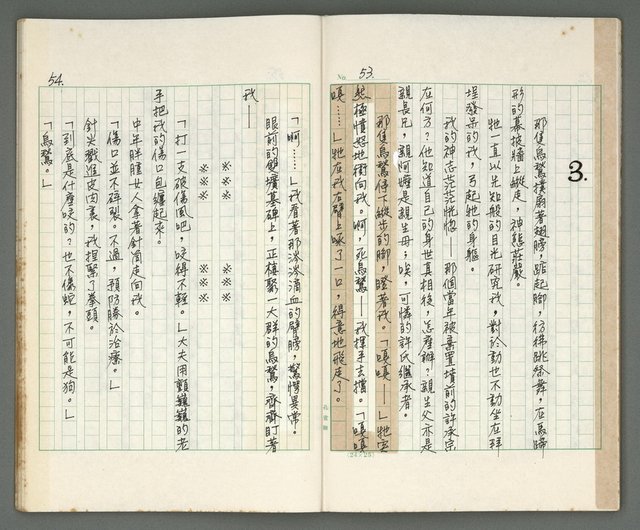 No. 53.
3.
那隻烏鶖撲扇著翅膀,踮起腳,彷彿跳綵舞,在馬蹄
形的墓披牆上縱走,神態莊嚴。
牠一直以先知般的目光研究我,對於動也不動坐在拜
埕發呆的我,弓起牠的身軀。
我的神志茫茫恍惚——那個當年被棄置墳前的許承宗
在何方?他知道自己的身世真相後,怎麼辦?親生父亦是
親長兄,親阿嬤是親生母;唉,可憐的許氏繼承者。
那隻烏鶖停下縱步的腳,瞪著我。「嘎嘎——」牠突
然極憤怒地衝向我。啊,死烏鶖——我揮手去擋。「嘎嘎
嘎……」牠在我右臂上啄了一口,得意地飛走了。
孔雀牌
(24×25)
54.
「啊……」我看著那涔涔滴血的臂膀,驚愕異常。
眼前的觀墳墓碑上,正棲聚一大群的烏鶖,齊齊盯著
我——
※ ※ ※ ※ ※ ※
※ ※ ※ ※ ※ ※
「打一支破傷風吧,咬得不輕。」大夫用顫巍巍的老
手把我的傷口包紮起來。
中年胖腫女人拿著針筒走向我。
「傷口並不碎裂。不過,預防勝於治療。」
針尖戳進皮肉裏,我捏緊了拳頭。
「到底是什麼咬的?也不像蛇,不可能是狗。」
「烏鶖。」